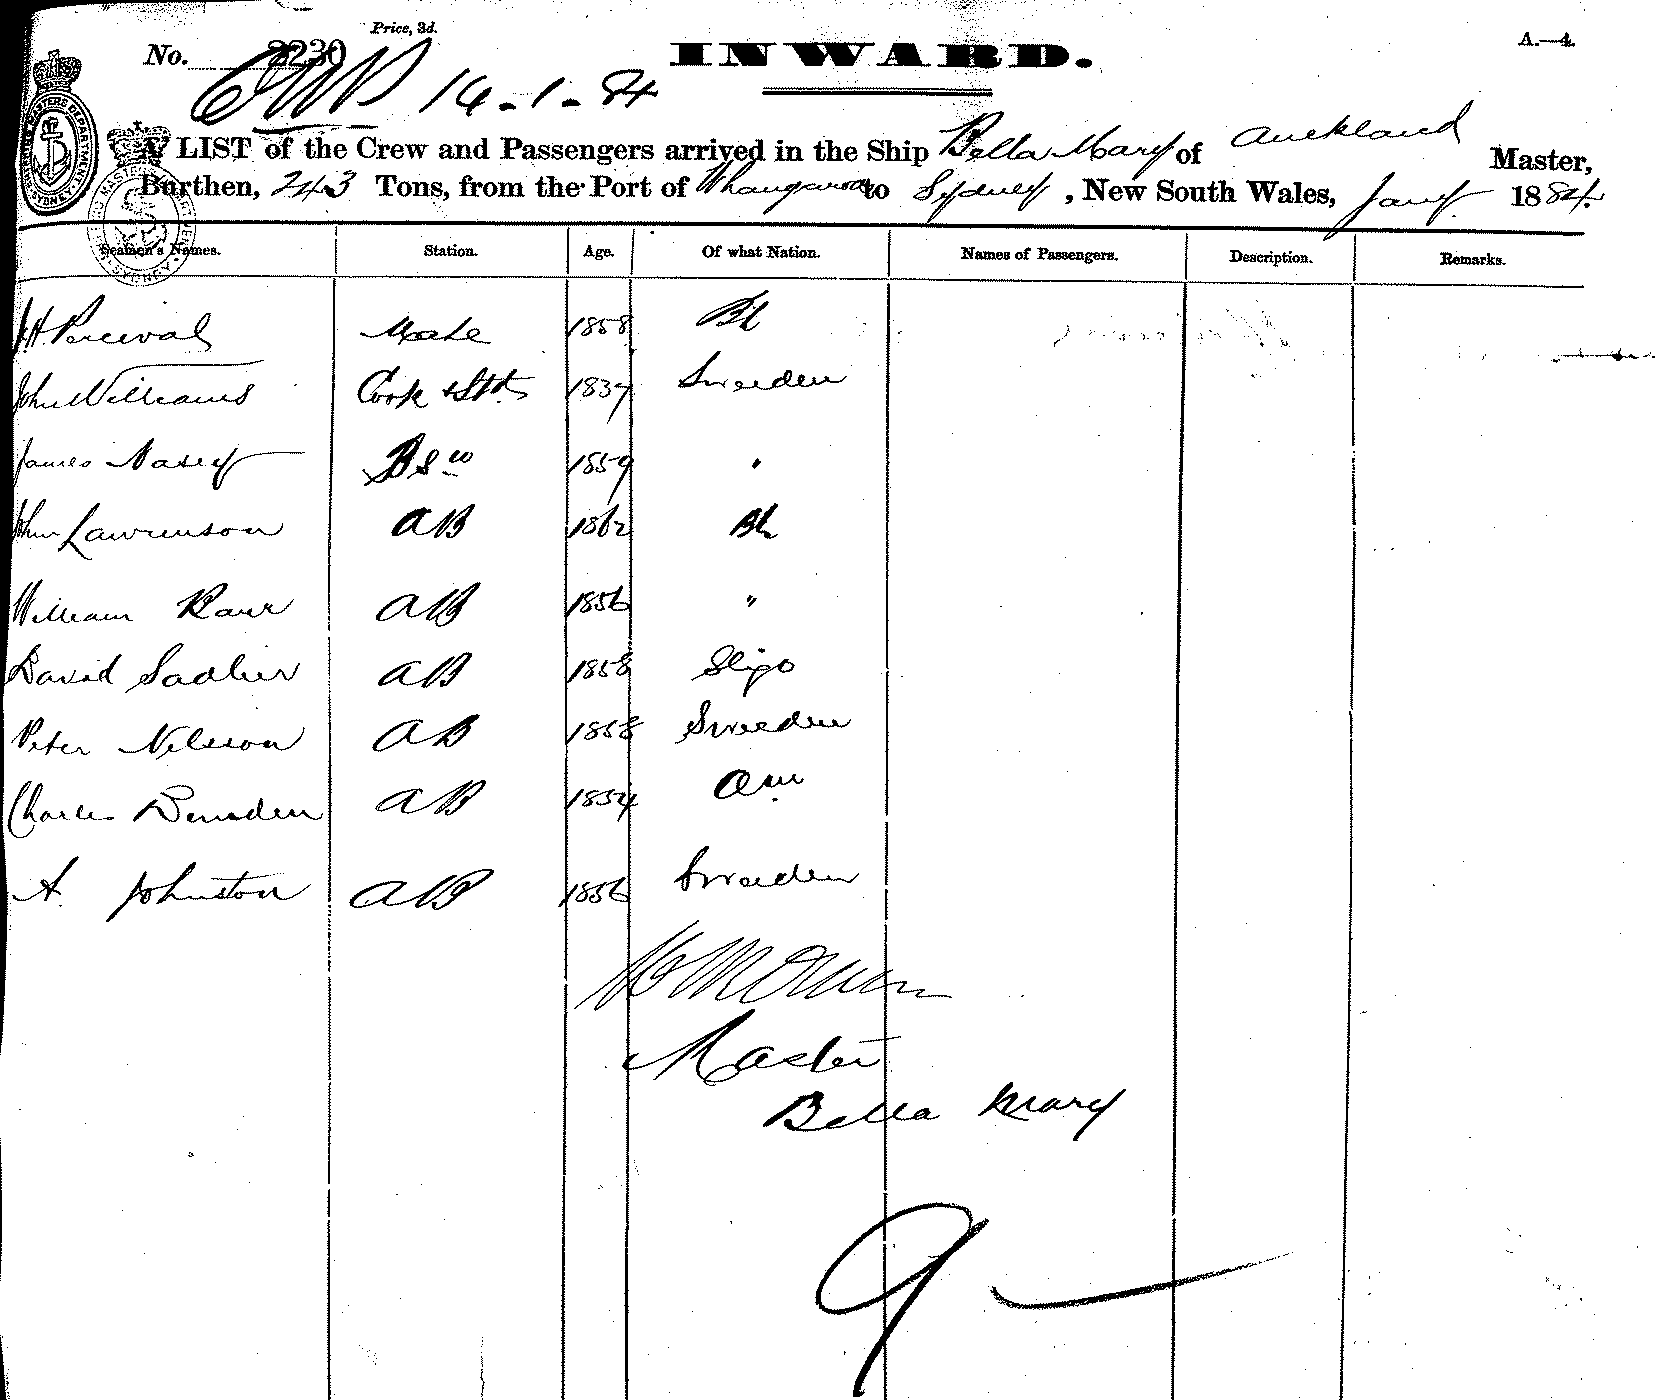 Price, 3d.
No. 3230 INWARD. A.—4.
14-1-84
A LIST of the Crew and Passengers arrived in the Ship Bella Mary of Auckland Master,
Burthen, 243 Tons, from the Port of Whangaroa to Sydney, New South Wales, Jany 1884.
Seamen's Names. Station. Age. Of what Nation. Names of Passengers. Description. Remarks.
Percival Mate 1858 Bh
John Williams Cook & Std 1837 Sweeden
James 1859 "
John Lawrenson AB 1862 Bh
William AB 1856 "
David Sadlier AB 1858 Sligo
Peter Nelson AB 1858 Sweeden
Charles AB 1854
A. Johnston AB 1856 Sweeden
Master
Bella Mary
9